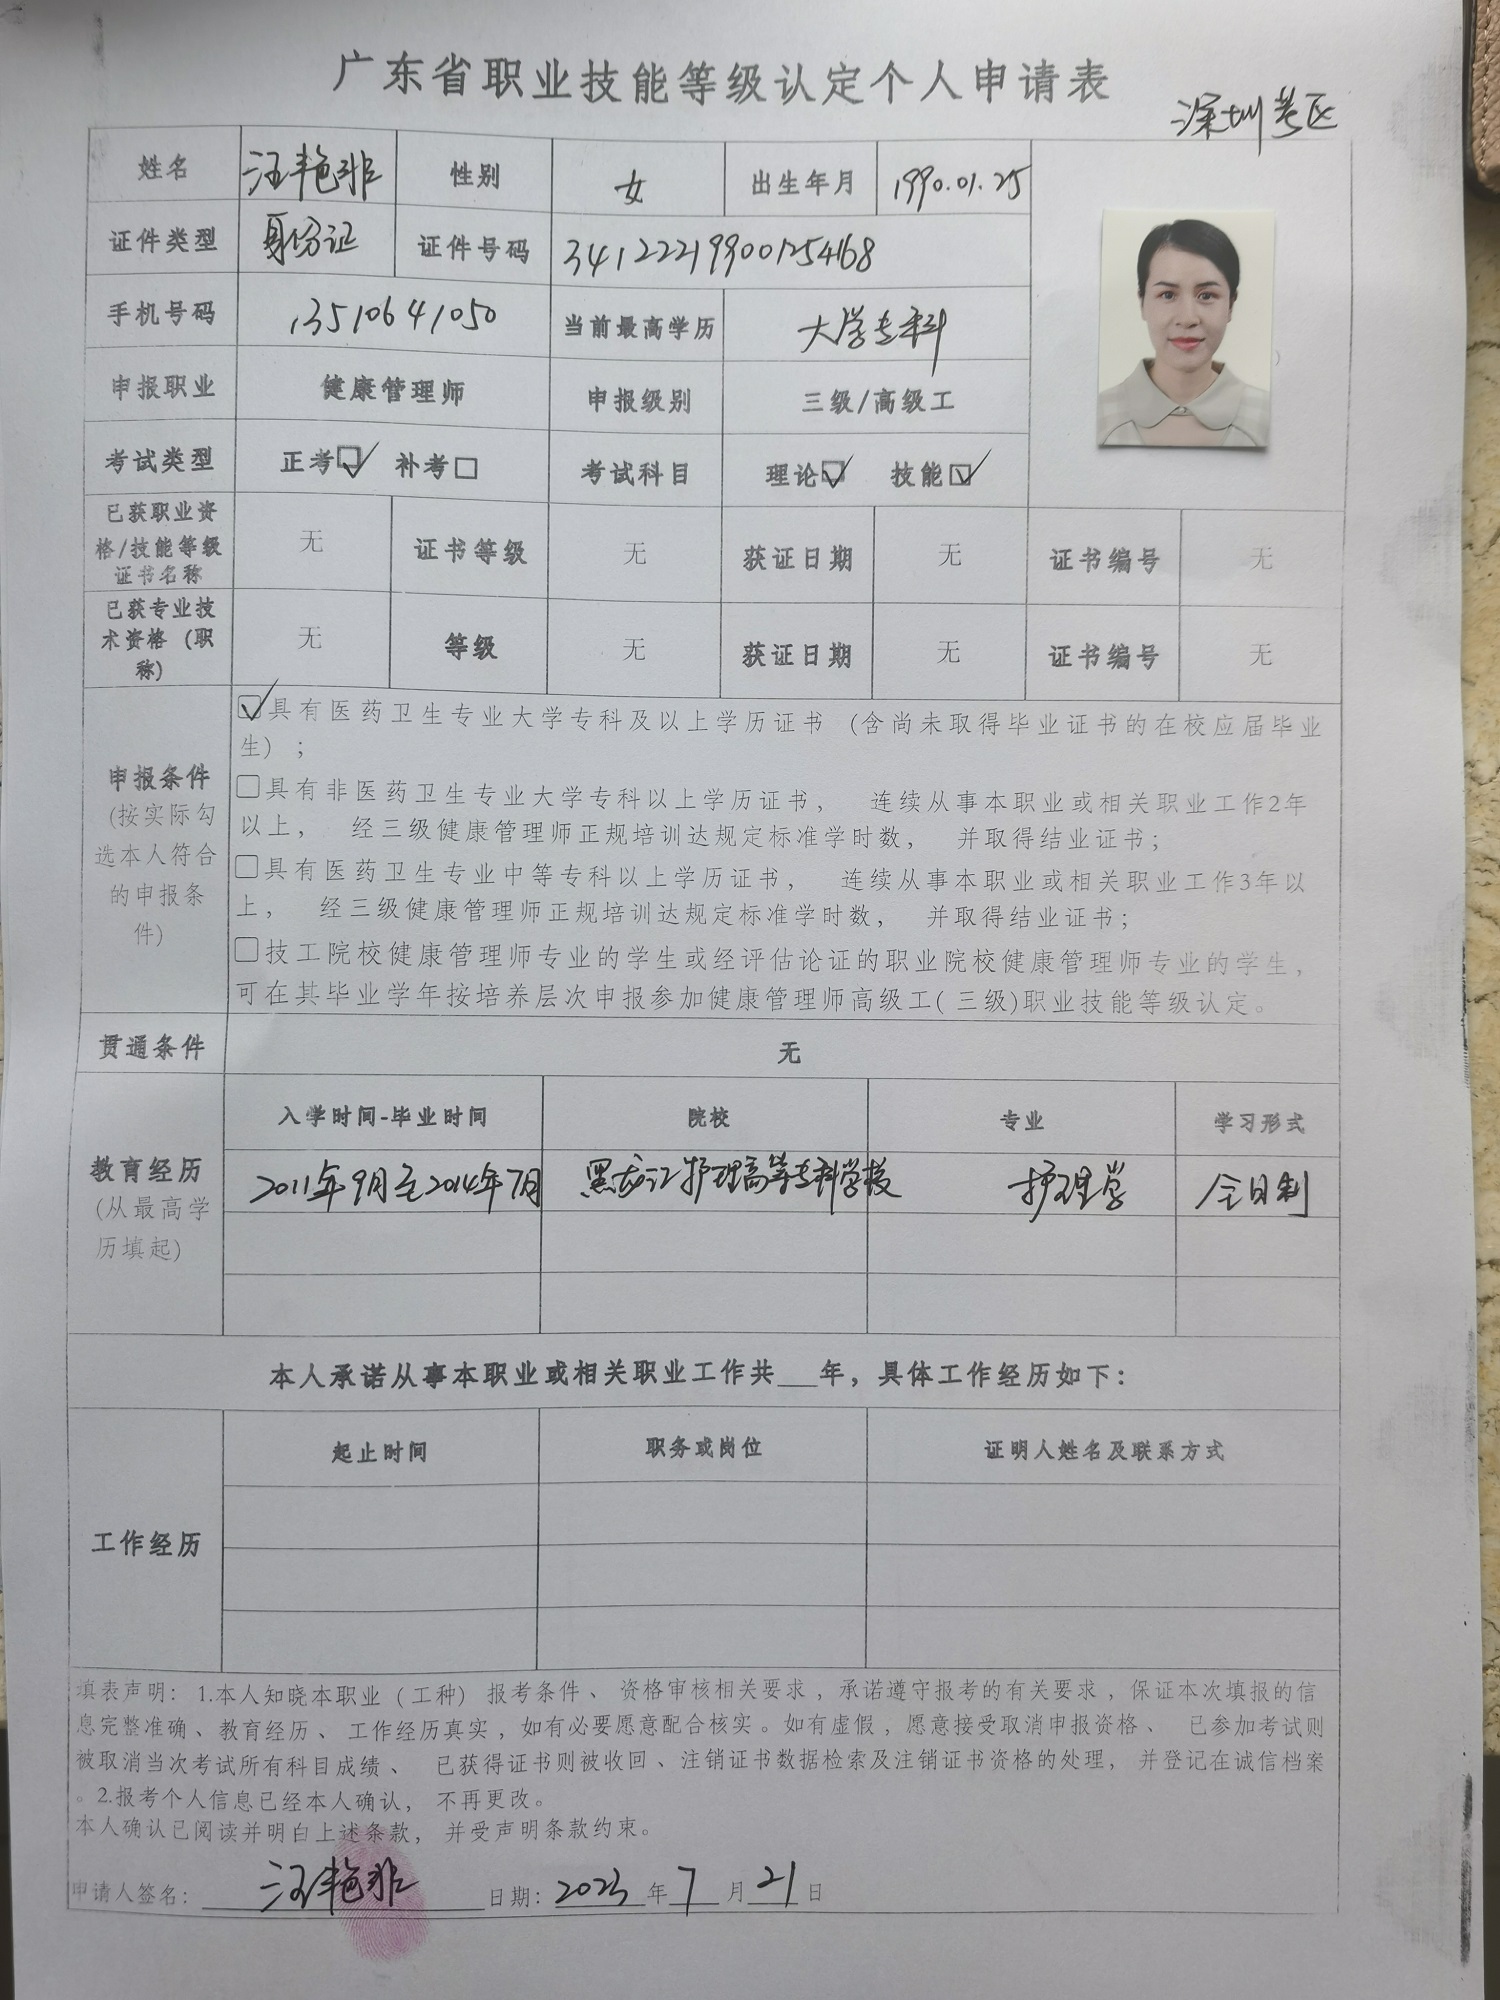 广东省职业技能等级认定个人申请表
深圳考区
姓名 汪艳非 性别 女 出生年月 1990.01.25
证件类型 身份证 证件号码 341222199001254168
手机号码 13510641050 当前最高学历 大学专科
申报职业 健康管理师 申报级别 三级/高级工
考试类型 正考☑ 补考□ 考试科目 理论☑ 技能☑
已获职业资格/技能等级证书名称 无 证书等级 无 获证日期 无 证书编号 无
已获专业技术资格（职称） 无 等级 无 获证日期 无 证书编号 无
申报条件
(按实际勾选本人符合的申报条件)
☑具有医药卫生专业大学专科及以上学历证书（含尚未取得毕业证书的在校应届毕业
生）；
□具有非医药卫生专业大学专科以上学历证书， 连续从事本职业或相关职业工作2年
以上， 经三级健康管理师正规培训达规定标准学时数， 并取得结业证书；
□具有医药卫生专业中等专科以上学历证书， 连续从事本职业或相关职业工作3年以
上， 经三级健康管理师正规培训达规定标准学时数， 并取得结业证书；
□技工院校健康管理师专业的学生或经评估论证的职业院校健康管理师专业的学生，
可在其毕业学年按培养层次申报参加健康管理师高级工(三级)职业技能等级认定。
贯通条件 无
教育经历
(从最高学历填起)
入学时间-毕业时间 院校 专业 学习形式
2011年9月至2014年7月 黑龙江护理高等专科学校 护理学 全日制
本人承诺从事本职业或相关职业工作共__年，具体工作经历如下：
工作经历 起止时间 职务或岗位 证明人姓名及联系方式
填表声明：1.本人知晓本职业（工种）报考条件、资格审核相关要求，承诺遵守报考的有关要求，保证本次填报的信
息完整准确、教育经历、工作经历真实，如有必要愿意配合核实。如有虚假，愿意接受取消申报资格、 已参加考试则
被取消当次考试所有科目成绩、 已获得证书则被收回、注销证书数据检索及注销证书资格的处理， 并登记在诚信档案
。2.报考个人信息已经本人确认， 不再更改。
本人确认已阅读并明白上述条款， 并受声明条款约束。
申请人签名：汪艳非 日期：2023年7月21日